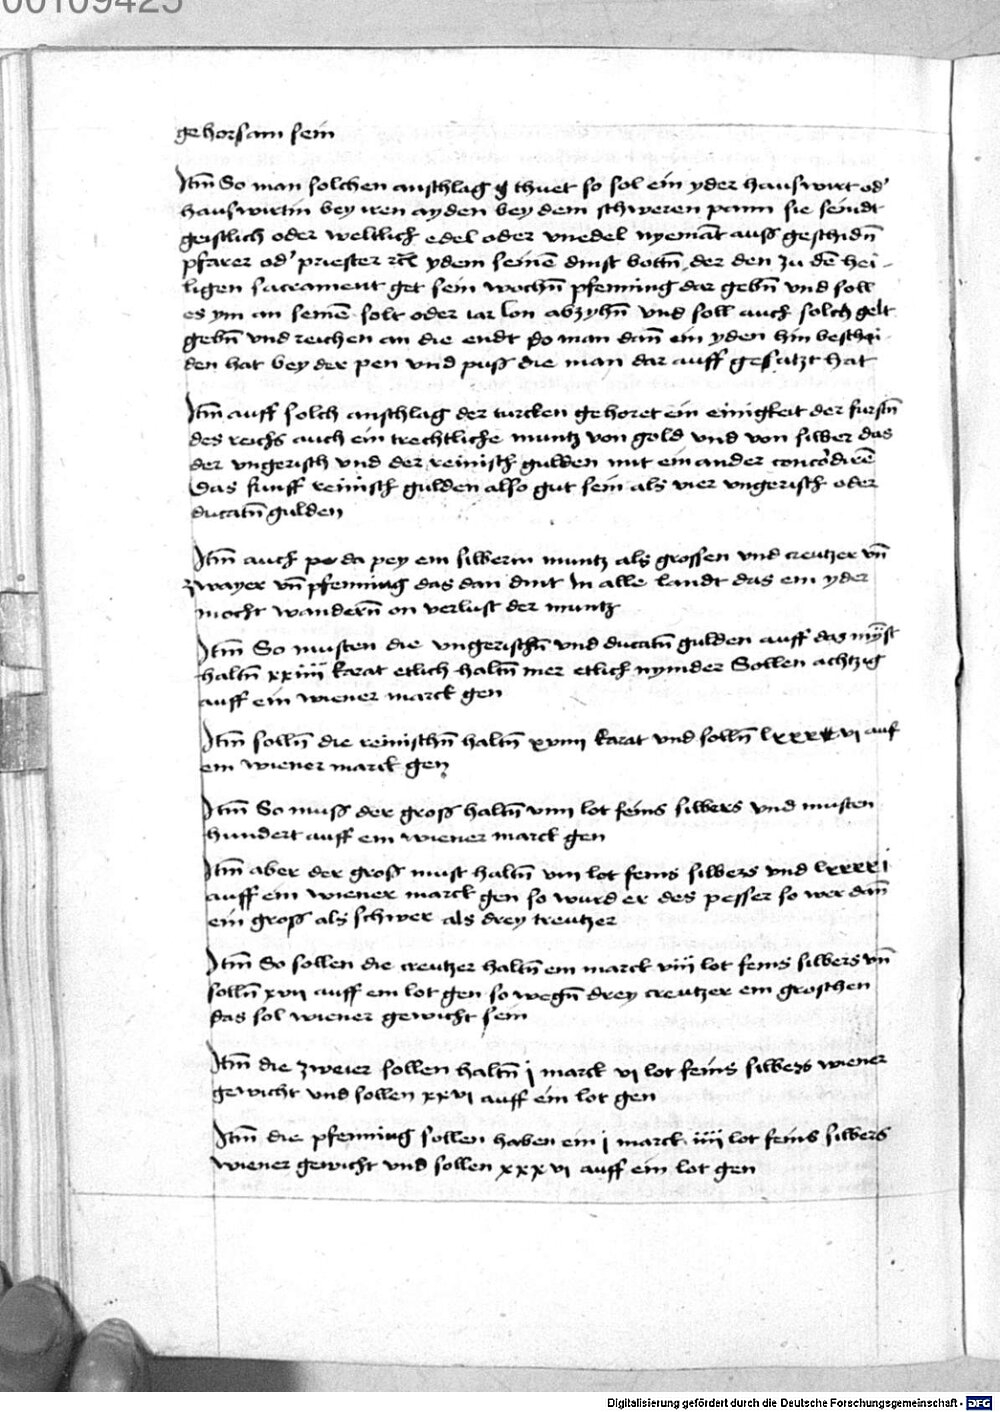 00109425
gehorsam sein
Itm̄ So man solchen anschlag g thuet so sol ein yder hauswirt od'
hauswirtin bey iren ayden bey dem schweren pann sie seindt
geistlich oder weltlich edel oder vnedel nyemāt auss geschidn̄
pfarer od' priester ydem seinē dinst bottn̄ der den zu dē hei-
ligen sacrament get sein wochn̄ pfenning dar gebn̄ vnd soll
es ym an seinē solt oder iar lon abzyhn̄ vnd soll auch solch gelt
gebn̄ vnd reichen an die endt do man dan̄ ein yden hin beschei-
den hat bey der pen vnd puss die man dar auff gesatzt hat
Itm̄ auff solch anschlag der turcken gehoret ein einigkeit der furstn̄
des reichs auch ein trechtliche muntz von gold vnd von silber das
der vngerisch vnd der reinisch gulden mit ein ander concōdirē
Das funff reinisch gulden also gut sein als vier vngerisch oder
ducatn̄ gulden
Itm̄ auch da pey ein silberin muntz als grossen vnd creutzer vn̄
zwayer vn̄ pfenning das dan dint In alle landt das ein yder
mocht wandern̄ on verlust der muntz
Itm̄ So musten die vngerischn̄ vnd ducatn̄ gulden auff das mynst
haltn̄ xxiiii karat etlich haltn̄ mer etlich mynnder Sollen achtzig
auff ein wiener marck gen
Itm̄ solln̄ die reinischn̄ haltn̄ xviiii karat vnd solln̄ lxxxvi auf
ein wiener marck gen
Itm̄ So muss der gross haltn̄ viiii lot feins silbers vnd musten
hundert auff ein wiener marck gen
Itm̄ aber der gross must haltn̄ viii lot feins silbers vnd lxxxxi
auff ein wiener marck gen so wurd er des pesser so wer dan̄
ein gross als schwer als drey kreutzer
Itm̄ So sollen die creutzer haltn̄ ein marck viii lot feins silbers vn̄
solln̄ xvii auff ein lot gen so wegn̄ drey creutzer ein groschen
das sol wiener gewicht sein
Itm̄ die zweier sollen haltn̄ j marck vi lot feins silbers wiener
gewicht vnd sollen xxvi auff ein lot gen
Itm̄ die pfenning sollen haben ein j marck iiii lot feins silbers
wiener gewicht vnd sollen xxxvi auff ein lot gen
Digitalisierung gefördert durch die Deutsche Forschungsgemeinschaft - DFG